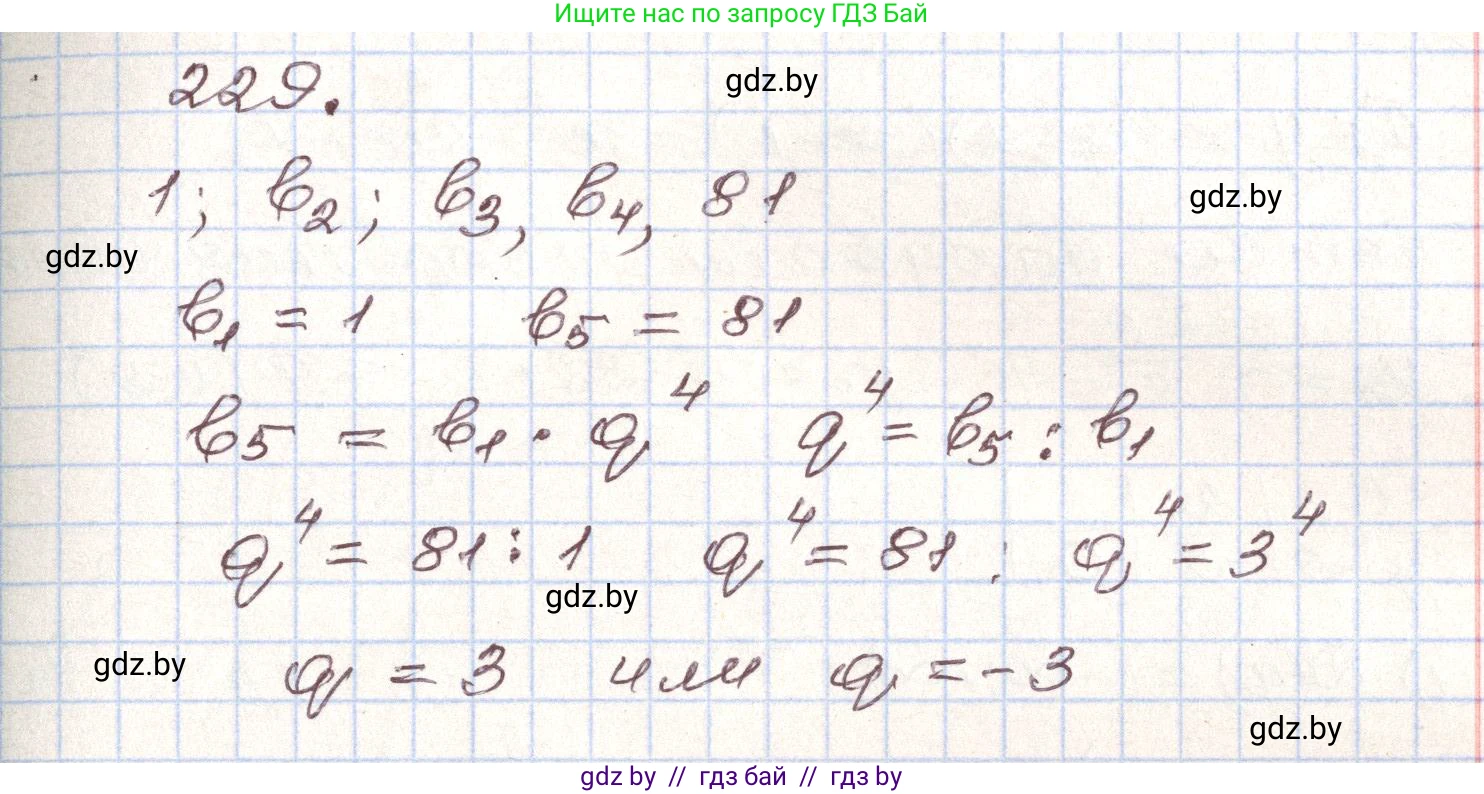 Ищите нас по запросу ГДЗ Бай
229.
gdz.by
1; b₂; b₃, b₄, 81
gdz.by
gdz.by
b₁ = 1 b₅ = 81
b₅ = b₁ · q⁴ q⁴ = b₅ : b₁
q⁴ = 81 : 1 q⁴ = 81 ; q⁴ = 3⁴
gdz.by
q = 3 или q = -3
gdz.by
gdz.by
gdz by // гдз бай // гдз by